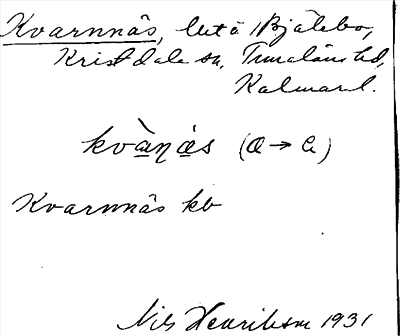 Kvarnnäs, lht å Bjälebo,
Kristdala sn, Tunaläns hd,
Kalmar l.
kvànǝs (a → a)
Kvarnnäs kb
Nils Henrikson 1931